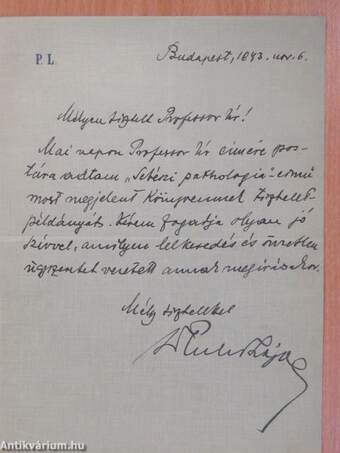 P. L.
Budapest, 1943. nov. 6.
Mélyen tisztelt Professor Úr!
Mai napon Professor Úr címére pos-
tára adtam „Sebészi pathologia" című
most megjelent Könyvemnek tisztelet-
példányát. Kérem fogadja olyan jó
szívvel, amilyen lelkesedés és önzetlen
ügyszeretet vezetett annak megírásakor.
Mély tisztelettel
Antikvárium.hu
antikvarium.hu